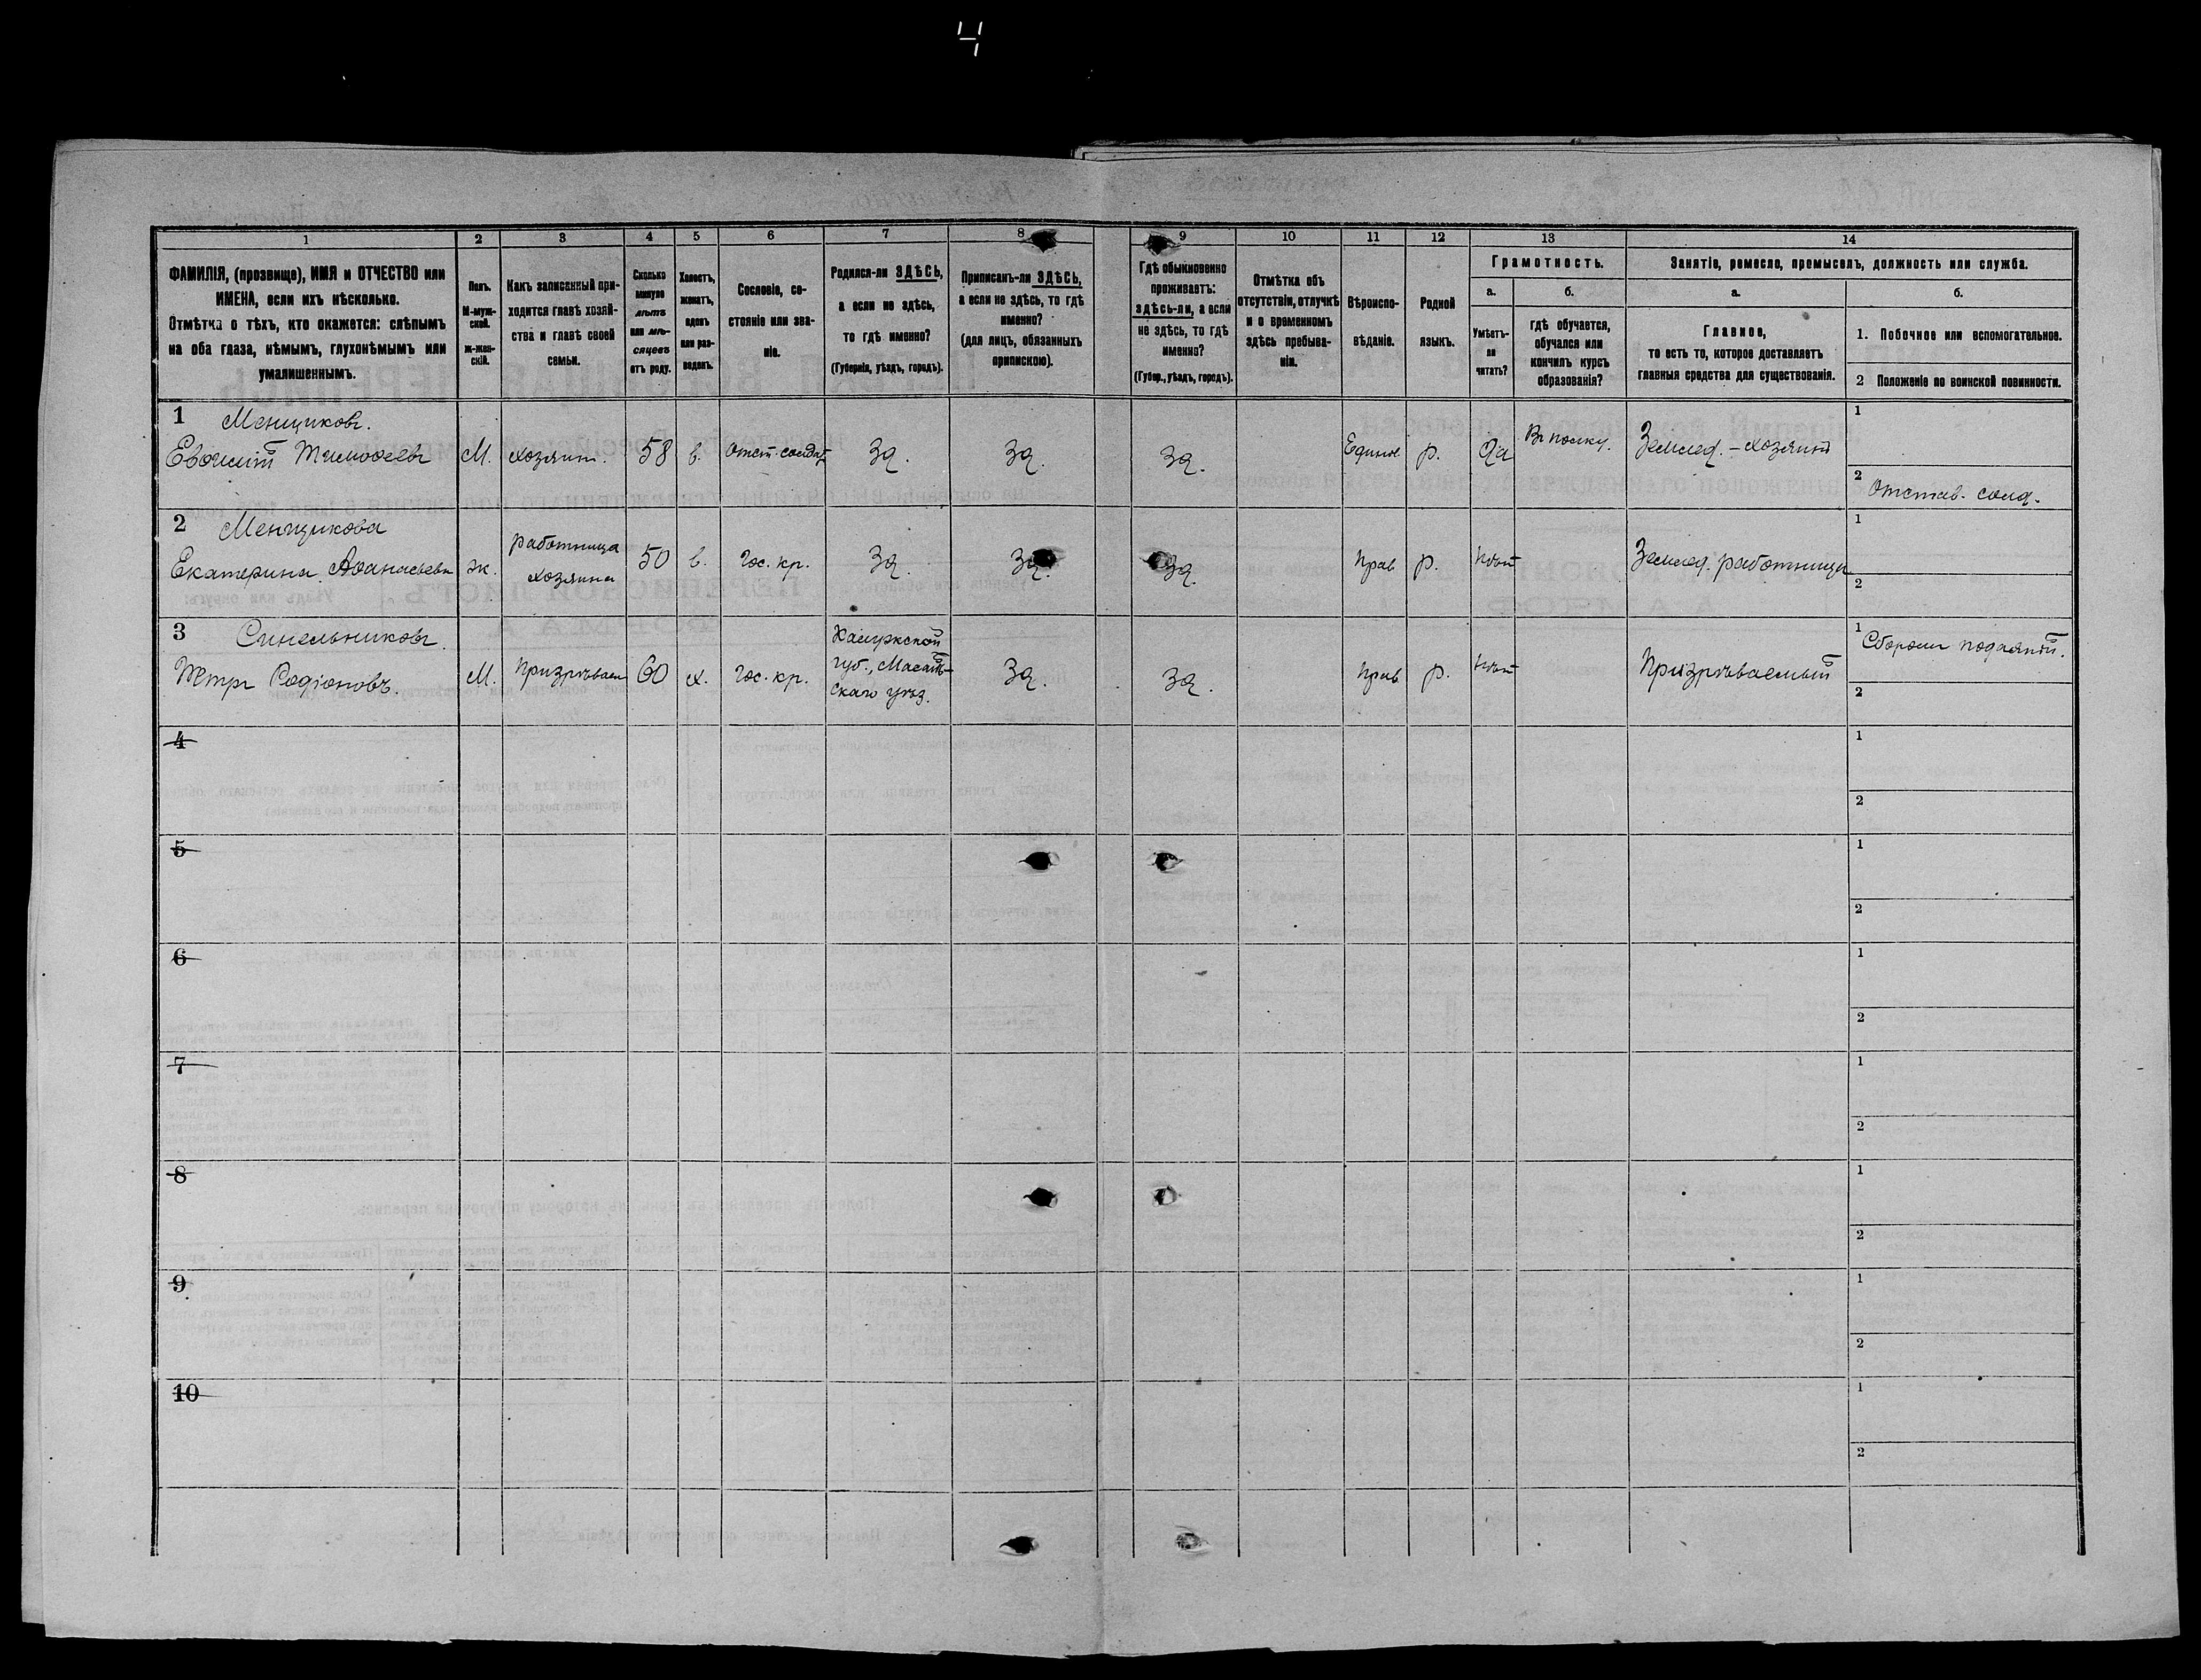 Ч
1
2
3
4
5
6
7
8
9
10
11
12
13
14
ФАМИЛІЯ, (прозвище), ИМЯ и ОТЧЕСТВО или
ИМЕНА, если ихъ нѣсколько.
Отмѣтка о тѣхъ, кто окажется: слѣпымъ
на оба глаза, нѣмымъ, глухонѣмымъ или
умалишеннымъ.
Полъ.
М-муж-
ской.
ж-жен-
скій.
Какъ записанный при-
ходится главѣ хозяй-
ства и главѣ своей
семьи.
Сколько
минуло
лѣтъ
или мѣ-
сяцевъ
отъ роду.
Холостъ,
женатъ,
вдовъ
или раз-
веденъ.
Сословіе, со-
стояніе или зва-
ніе.
Родился-ли ЗДѢСЬ,
а если не здѣсь,
то гдѣ именно?
(Губернія, уѣздъ, городъ).
Приписанъ-ли ЗДѢСЬ,
а если не здѣсь, то гдѣ
именно?
(для лицъ, обязанныхъ
припискою).
Гдѣ обыкновенно
проживаетъ:
здѣсь-ли, а если
не здѣсь, то гдѣ
именно?
(Губер., уѣздъ, городъ).
Отмѣтка объ
отсутствіи, отлучкѣ
и о временномъ
здѣсь пребыва-
ніи.
Вѣроиспо-
вѣданіе.
Родной
языкъ.
Грамотность.
а.
Умѣетъ-
ли
читать?
б.
гдѣ обучается,
обучался или
кончилъ курсъ
образованія?
Занятіе, ремесло, промыселъ, должность или служба.
а.
Главное,
то есть то, которое доставляетъ
главныя средства для существованія.
б.
1. Побочное или вспомогательное.
2 Положеніе по воинской повинности.
1 Менщиковъ.
Евѳимій Тимоѳеевъ М. хозяинъ. 58 в. Отст. солдат. Зд. Зд. Зд. Едино р. Да Въ полку. Землед. – хозяинъ
1
2 Отстав. солд.
2 Менщикова
Екатерина Аѳанасьевн ж. работница
хозяина 50 в. Гос. кр. Зд. Зд. Зд. Прав р. Нѣт Землед. работница
1
2
3 Синельниковъ.
Петръ Родіоновъ. М. Призрѣваем 60 х. Гос. кр.
губ.,
скаго уѣзд. Зд. Зд. Прав р. Нѣт Призрѣваемый
1 Сборомъ подаяній.
2
4
1
2
5
1
2
6
1
2
7
1
2
8
1
2
9
1
2
10
1
2